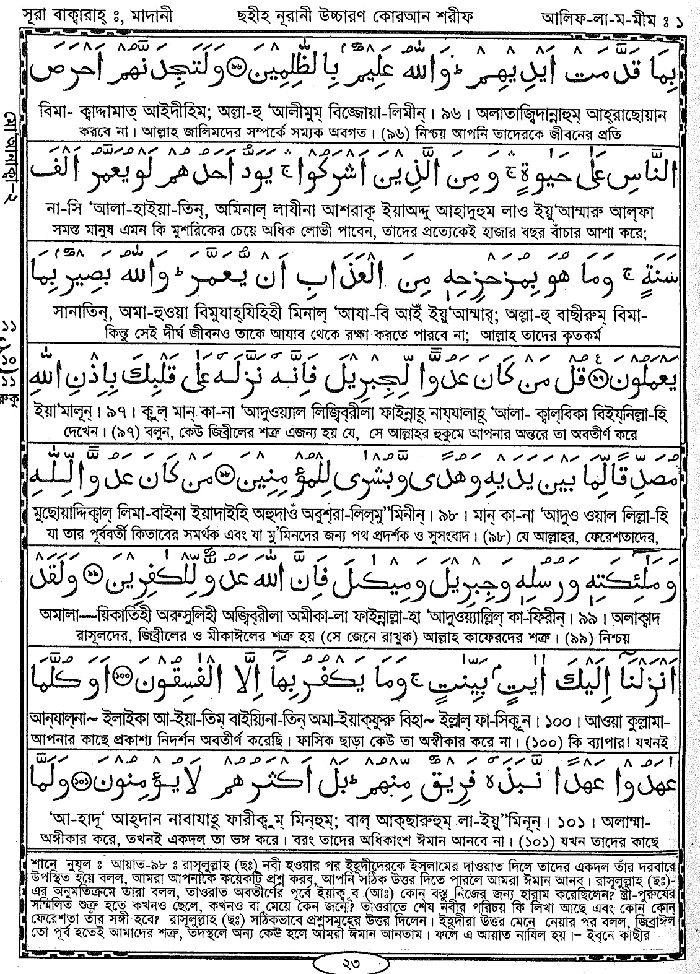 সূরা বাক্বারাহ্ ঃ মাদানী
ছহীহ্ নূরানী উচ্চারণ কোরআন শরীফ
আলিফ-লা-ম-মীম ঃ ১
بِمَا قَدَّمَتْ اَيْدِيْهِمْ ؕ وَاللّٰهُ عَلِيْمٌۢ بِالظّٰلِمِيْنَ ۝ وَلَتَجِدَنَّهُمْ اَحْرَصَ
বিমা- ক্বাদ্দামাত্ আইদীহিম; অল্লা-হু 'আলীমুম্ বিজ্জোয়া-লিমীন্। ৯৬। অলাতাজ্বিদান্নাহুম্ আহ্‌রাছোয়ান
করবে না। আল্লাহ জালিমদের সম্পর্কে সম্যক অবগত। (৯৬) নিশ্চয় আপনি তাদেরকে জীবনের প্রতি
النَّاسِ عَلٰى حَيٰوةٍ ۚ وَمِنَ الَّذِيْنَ اَشْرَكُوْا ۚ يَوَدُّ اَحَدُهُمْ لَوْ يُعَمَّرُ اَلْفَ
না-সি 'আলা-হাইয়া-তিন্, অমিনাল্ লাযীনা আশরাকূ ইয়াঅদ্দু আহাদুহুম লাও ইয়ু'আম্মারু আল্‌ফা
সমস্ত মানুষ এমন কি মুশরিকের চেয়ে অধিক লোভী পাবেন, তাদের প্রত্যেকেই হাজার বছর বাঁচার আশা করে;
سَنَةٍ ۚ وَمَا هُوَ بِمُزَحْزِحِهٖ مِنَ الْعَذَابِ اَنْ يُّعَمَّرَ ؕ وَاللّٰهُ بَصِيْرٌۢ بِمَا
সানাতিন্, অমা-হুওয়া বিমুযাহ্‌যিহিহী মিনাল্ 'আযা-বি আইঁ ইয়ু'আম্মার্; অল্লা-হু বাছীরুম্ বিমা-
কিন্তু সেই দীর্ঘ জীবনও তাকে আযাব থেকে রক্ষা করতে পারবে না; আল্লাহ তাদের কৃতকর্ম
يَعْمَلُوْنَ ۝ قُلْ مَنْ كَانَ عَدُوًّا لِّجِبْرِيْلَ فَاِنَّهٗ نَزَّلَهٗ عَلٰى قَلْبِكَ بِاِذْنِ اللّٰهِ
ইয়া'মালূন্। ৯৭। ক্বুল্ মান্ কা-না 'আদুওয়্যাল লিজ্বিব্‌রীলা ফাইন্নাহূ নায্‌যালাহূ 'আলা- ক্বাল্‌বিকা বিইয্‌নিল্লা-হি
দেখেন। (৯৭) বলুন, কেউ জিব্রীলের শত্রু এজন্য হয় যে, সে আল্লাহর হুকুমে আপনার অন্তরে তা অবতীর্ণ করে
مُصَدِّقًا لِّمَا بَيْنَ يَدَيْهِ وَهُدًى وَّبُشْرٰى لِلْمُؤْمِنِيْنَ ۝ مَنْ كَانَ عَدُوًّا لِّلّٰهِ
মুছোয়াদ্দিক্বাল্ লিমা-বাইনা ইয়াদাইহি অহুদাওঁ অবুশ্‌রা-লিল্‌মু''মিনীন্। ৯৮। মান্ কা-না 'আদুও ওয়াল লিল্লা-হি
যা তার পূর্ববর্তী কিতাবের সমর্থক এবং যা মু'মিনদের জন্য পথ প্রদর্শক ও সুসংবাদ। (৯৮) যে আল্লাহর, ফেরেশতাদের,
وَمَلٰٓئِكَتِهٖ وَرُسُلِهٖ وَجِبْرِيْلَ وَمِيْكٰىلَ فَاِنَّ اللّٰهَ عَدُوٌّ لِّلْكٰفِرِيْنَ ۝ وَلَقَدْ
অমালা—য়িকাতিহী অরুসুলিহী অজ্বিব্‌রীলা অমীকা-লা ফাইন্নাল্লা-হা 'আদুওয়্যাল্লিল্ কা-ফিরীন্। ৯৯। অলাক্বাদ
রাসূলদের, জিব্রীলের ও মীকাঈলের শত্রু হয় (সে জেনে রাখুক) আল্লাহ কাফেরদের শত্রু। (৯৯) নিশ্চয়
اَنْزَلْنَآ اِلَيْكَ اٰيٰتٍۭ بَيِّنٰتٍ ۚ وَمَا يَكْفُرُ بِهَآ اِلَّا الْفٰسِقُوْنَ ۝ اَوَكُلَّمَا
আন্‌যাল্‌না~ ইলাইকা আ-ইয়া-তিম্ বাইয়্যিনা-তিন্ অমা-ইয়াক্‌ফুরু বিহা~ ইল্লাল্ ফা-সিক্বূন। ১০০। আওয়া কুল্লামা-
আপনার কাছে প্রকাশ্য নিদর্শন অবতীর্ণ করেছি। ফাসিক ছাড়া কেউ তা অস্বীকার করে না। (১০০) কি ব্যাপার! যখনই
عٰهَدُوْا عَهْدًا نَّبَذَهٗ فَرِيْقٌ مِّنْهُمْ ؕ بَلْ اَكْثَرُهُمْ لَا يُؤْمِنُوْنَ ۝ وَلَمَّا
'আ-হাদূ আহ্‌দান নাবাযাহূ ফারীক্বুম্ মিন্‌হুম্; বাল্ আক্‌ছারুহুম্ লা-ইয়ু''মিনূন্। ১০১। অলাম্মা-
অঙ্গীকার করে, তখনই একদল তা ভঙ্গ করে। বরং তাদের অধিকাংশ ঈমান আনবে না। (১০১) যখন তাদের কাছে
শানে নুযূল ঃ আয়াত-৯৮ ঃ রাসূলুল্লাহ (ছঃ) নবী হওয়ার পর ইহুদীদেরকে ইসলামের দাওয়াত দিলে তাদের একদল তাঁর দরবারে
উপস্থিত হয়ে বলল, আমরা আপনাকে কয়েকটি প্রশ্ন করব, আপনি সঠিক উত্তর দিতে পারলে আমরা ঈমান আনব। রাসূলুল্লাহ (ছঃ)-
এর অনুমতিক্রমে তারা বলল, তাওরাত অবতীর্ণের পূর্বে ইয়াকূব (আঃ) কোন বস্তু নিজের জন্য হারাম করেছিলেন? স্ত্রী-পুরুষের
সম্মিলিত শুক্র হতে কখনও ছেলে, কখনও বা মেয়ে কেন জন্মে? তাওরাতে শেষ নবীর পরিচয় কি লিখা আছে এবং কোন্ কোন্
ফেরেশতা তাঁর সঙ্গী হবে? রাসূলুল্লাহ (ছঃ) সঠিকভাবে প্রশ্নসমূহের উত্তর দিলেন। ইহুদীরা উত্তর মেনে নেয়ার পর বলল, জিব্রাঈল
তো পূর্ব হতেই আমাদের শত্রু, তদস্থলে অন্য কেহ হলে আমরা ঈমান আনতাম। ফলে এ আয়াত নাযিল হয়। -ইবনে কাছীর
২৩